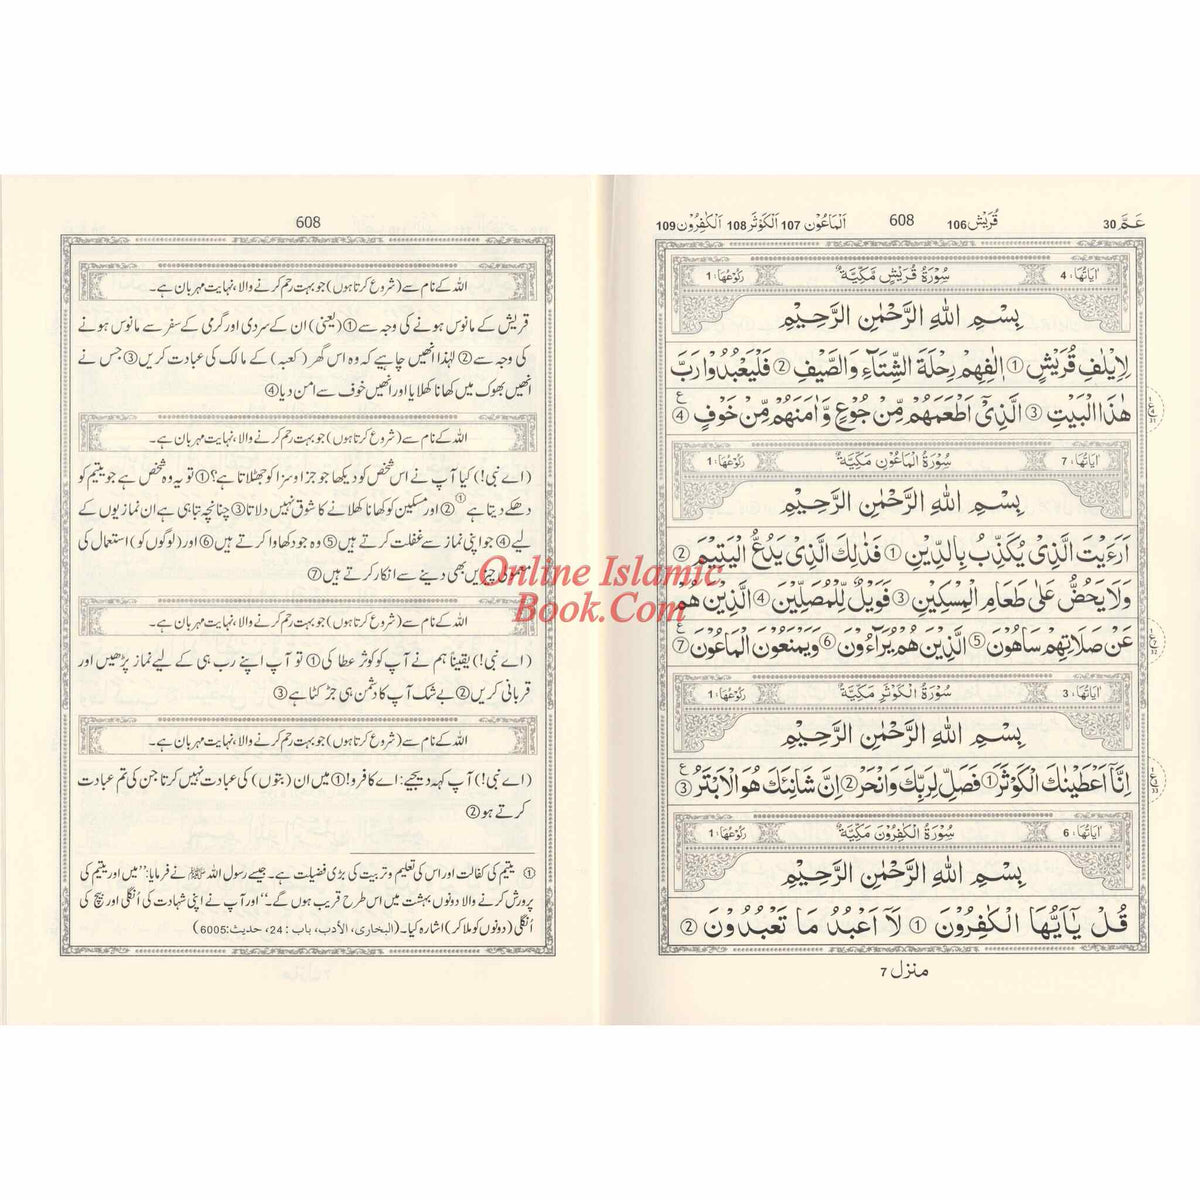 عَمَّ 30
قُرَيْش 106
608
اَلْمَاعُوْن 107 اَلْكَوْثَر 108 اَلْكٰفِرُوْن 109
اٰيَاتُهَا: 4
سُوْرَةُ قُرَيْشٍ مَّكِّيَّةٌ
رُكُوْعُهَا: 1
بِسْمِ اللّٰهِ الرَّحْمٰنِ الرَّحِيْمِ
لِاِيْلٰفِ قُرَيْشٍ ① اٖلٰفِهِمْ رِحْلَةَ الشِّتَآءِ وَالصَّيْفِ ② فَلْيَعْبُدُوْا رَبَّ
هٰذَا الْبَيْتِ ③ الَّذِيْٓ اَطْعَمَهُمْ مِّنْ جُوْعٍ وَّاٰمَنَهُمْ مِّنْ خَوْفٍ ④
اٰيَاتُهَا: 7
سُوْرَةُ الْمَاعُوْنِ مَكِّيَّةٌ
رُكُوْعُهَا: 1
بِسْمِ اللّٰهِ الرَّحْمٰنِ الرَّحِيْمِ
اَرَءَيْتَ الَّذِيْ يُكَذِّبُ بِالدِّيْنِ ① فَذٰلِكَ الَّذِيْ يَدُعُّ الْيَتِيْمَ ②
وَلَا يَحُضُّ عَلٰى طَعَامِ الْمِسْكِيْنِ ③ فَوَيْلٌ لِّلْمُصَلِّيْنَ ④ الَّذِيْنَ هُمْ
عَنْ صَلَاتِهِمْ سَاهُوْنَ ⑤ الَّذِيْنَ هُمْ يُرَآءُوْنَ ⑥ وَيَمْنَعُوْنَ الْمَاعُوْنَ ⑦
اٰيَاتُهَا: 3
سُوْرَةُ الْكَوْثَرِ مَكِّيَّةٌ
رُكُوْعُهَا: 1
بِسْمِ اللّٰهِ الرَّحْمٰنِ الرَّحِيْمِ
اِنَّآ اَعْطَيْنٰكَ الْكَوْثَرَ ① فَصَلِّ لِرَبِّكَ وَانْحَرْ ② اِنَّ شَانِئَكَ هُوَ الْاَبْتَرُ ③
اٰيَاتُهَا: 6
سُوْرَةُ الْكٰفِرُوْنَ مَكِّيَّةٌ
رُكُوْعُهَا: 1
بِسْمِ اللّٰهِ الرَّحْمٰنِ الرَّحِيْمِ
قُلْ يٰٓاَيُّهَا الْكٰفِرُوْنَ ① لَآ اَعْبُدُ مَا تَعْبُدُوْنَ ②
منزل 7
608
اللہ کے نام سے (شروع کرتا ہوں) جو بہت رحم کرنے والا، نہایت مہربان ہے۔
قریش کے مانوس ہونے کی وجہ سے ① (یعنی) ان کے سردی اور گرمی کے سفر سے مانوس ہونے
کی وجہ سے ② لہٰذا انھیں چاہیے کہ وہ اس گھر (کعبہ) کے مالک کی عبادت کریں ③ جس نے
انھیں بھوک میں کھانا کھلایا اور انھیں خوف سے امن دیا ④
اللہ کے نام سے (شروع کرتا ہوں) جو بہت رحم کرنے والا، نہایت مہربان ہے۔
(اے نبی!) کیا آپ نے اس شخص کو دیکھا جو جزا و سزا کو جھٹلاتا ہے؟ ① تو یہ وہ شخص ہے جو یتیم کو
دھکے دیتا ہے ① ② اور مسکین کو کھانا کھلانے کا شوق نہیں دلاتا ③ چنانچہ تباہی ہے ان نمازیوں کے
لیے ④ جو اپنی نماز سے غفلت کرتے ہیں ⑤ وہ جو دکھاوا کرتے ہیں ⑥ اور (لوگوں کو) استعمال کی
معمولی چیزیں بھی دینے سے انکار کرتے ہیں ⑦
اللہ کے نام سے (شروع کرتا ہوں) جو بہت رحم کرنے والا، نہایت مہربان ہے۔
(اے نبی!) یقیناً ہم نے آپ کو کوثر عطا کی ① تو آپ اپنے رب ہی کے لیے نماز پڑھیں اور
قربانی کریں ② بے شک آپ کا دشمن ہی جڑ کٹا ہے ③
اللہ کے نام سے (شروع کرتا ہوں) جو بہت رحم کرنے والا، نہایت مہربان ہے۔
(اے نبی!) آپ کہہ دیجیے: اے کافرو! ① میں ان (بتوں) کی عبادت نہیں کرتا جن کی تم عبادت
کرتے ہو ②
① یتیم کی کفالت اور اس کی تعلیم و تربیت کی بڑی فضیلت ہے۔ جیسے رسول اللہ ﷺ نے فرمایا: ”میں اور یتیم کی
پرورش کرنے والا دونوں بہشت میں اس طرح قریب ہوں گے۔“ اور آپ نے اپنی شہادت کی اُنگلی اور بیچ کی
اُنگلی (دونوں کو ملا کر) اشارہ کیا۔ (البخاری، الأدب، باب: 24، حدیث: 6005)
Online Islamic
Book.Com